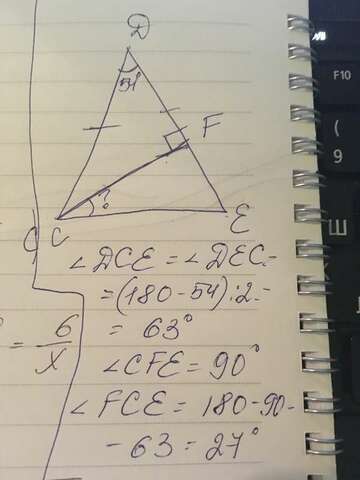 D
54°
F
?
C
E
∠DCE = ∠DEC =
= (180 - 54) : 2 =
= 63°
∠CFE = 90°
∠FCE = 180 - 90 -
- 63 = 27°
° = 6/x
F10
(
9
Ш